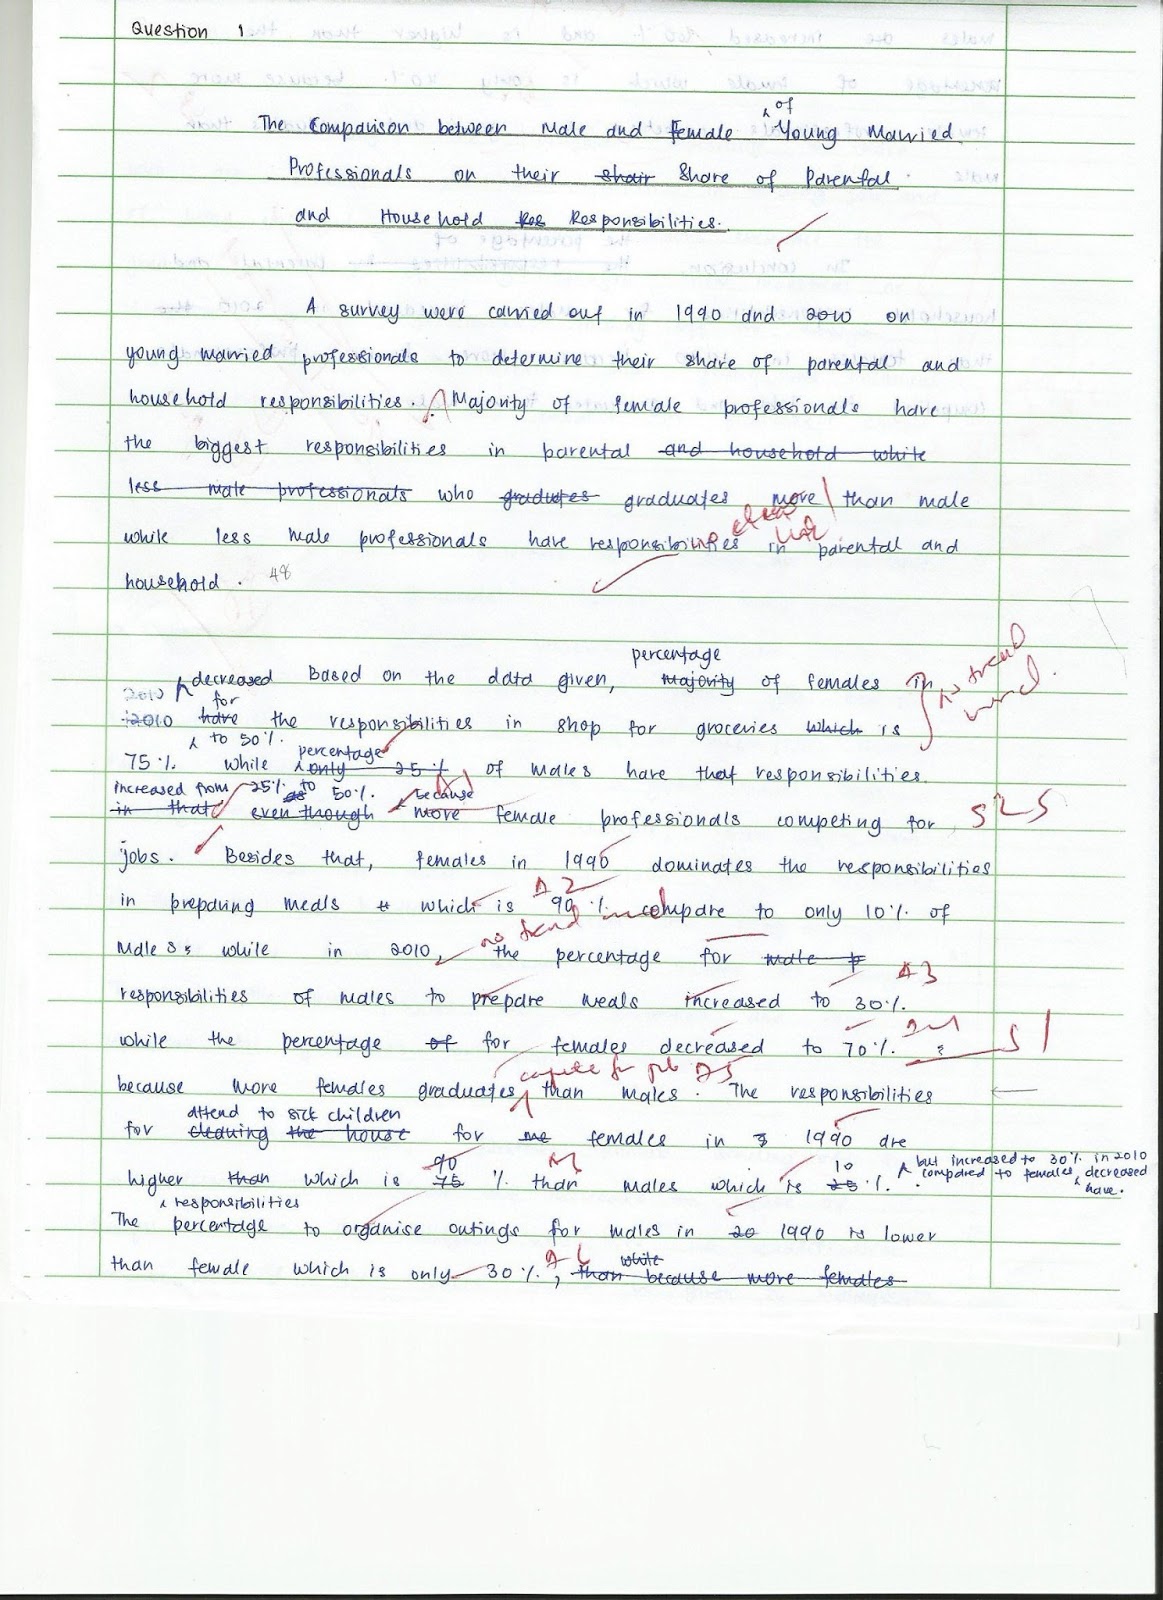 Question 1
of
The Comparison between Male and Female Young Married
Professionals on their shair Share of Parental
and Household Res Responsibilities.
A survey were carried out in 1990 and 2010 on
young married professionals to determine their share of parental and
household responsibilities. Majority of female professionals have
the biggest responsibilities in parental and household while
less male professionals who gradutes graduates more than male
while less male professionals have responsibilities in parental and
household. 48
percentage
2010 decreased Based on the data given, Majority of females in
for
2010 have the responsibilities in shop for groceries which is
to 50%. percentage
75% while only 25% of males have that responsibilities.
increased from 25% to 50%. because
in that even though more female professionals competing for S2 S
jobs. Besides that, females in 1990 dominates the responsibilities
in preparing meals which is 90% compare to only 10% of
A2
no trend
Males, while in 2010, the percentage for male
A3
responsibilities of males to prepare meals increased to 30%.
while the percentage of for females decreased to 70%. S1
compete for job A5
because more females graduates than males. The responsibilities
attend to sick children
for cleaning the house for females in 1990 are
90 10 but increased to 30% in 2010
higher than which is 75 % than males which is 25 %. compared to females, decreased
have.
responsibilities
The percentage to organise outings for males in 20 1990 is lower
while
than female which is only 30%, than because more females